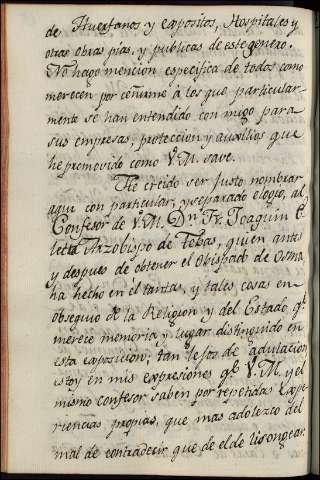 de Huerfanos y expositos, Hospitales y
otras obras pias, y publicas de este genero.
No hago mencion especifica de todos como
merecen por ceñirme à los que particular-
mente se han entendido con migo para
sus empresas, proteccion y auxilios que
he promovido como V.M. save.
He creido ser justo nombrar
aqui con particular, y separado elogio, al
Confesor de V.M. Dn. Fr. Joaquin E
leta Arzobispo de Tebas, quien antes
y despues de obtener el Obispado de Osma
ha hecho en el tantas, y tales cosas en
obsequio de la Religion y del Estado qe.
merece memoria y lugar distinguido en
esta exposicion; tan lejos de adulacion
estoy en mis expresiones qe. V.M. y el
mismo confesor saben por repetidas expe
riencias propias, que mas adolezco del
mal de contradecir que de el de lisongear.